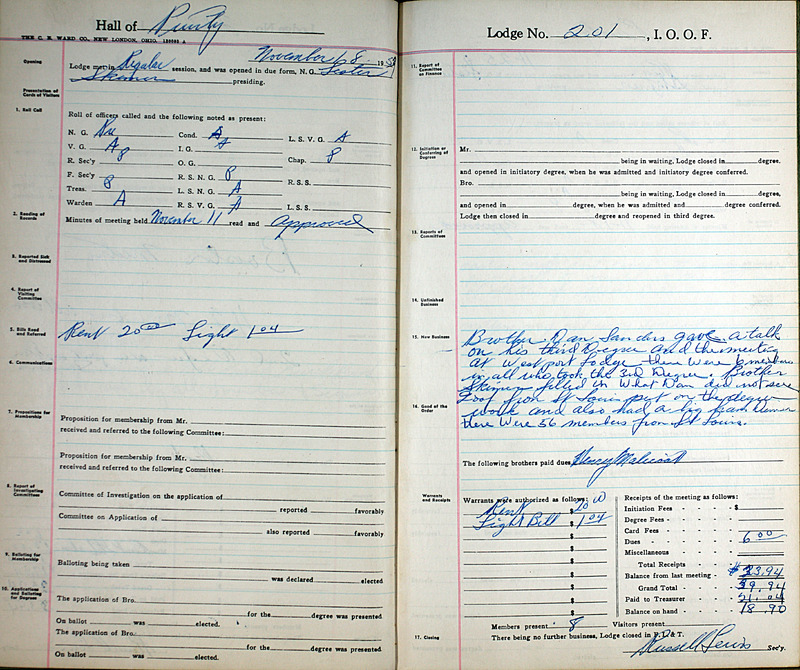 Hall of Purity
THE C. E. WARD CO., NEW LONDON, OHIO.
Opening
November 8, 19
Lodge met in Regular session, and was opened in due form, N. G. Sister
Skinner presiding.
Presentation of Cards of Visitors
1. Roll Call
Roll of officers called and the following noted as present:
N. G. Cond. A L. S. V. G. A
V. G. A I. G. A
R. Sec'y P O. G. Chap. P
F. Sec'y R. S. N. G. P R. S. S.
Treas. P L. S. N. G. A
Warden A R. S. V. G. A L. S. S.
2. Reading of Records
Minutes of meeting held November 11 read and Approved
3. Reported Sick and Distressed
4. Report of Visiting Committee
5. Bills Read and Referred
Rent 20 00 Light 1 04
6. Communications
7. Propositions for Membership
Proposition for membership from Mr.
received and referred to the following Committee:
Proposition for membership from Mr.
received and referred to the following Committee:
8. Report of Investigating Committees
Committee of Investigation on the application of
reported favorably
Committee on Application of
also reported favorably
9. Balloting for Membership
Balloting being taken
was declared elected
10. Applications and Balloting for Degrees
The application of Bro.
for the degree was presented
On ballot was elected.
The application of Bro.
for the degree was presented
On ballot was elected.
Lodge No. 201, I. O. O. F.
11. Report of Committee on Finance
12. Initiation or Conferring of Degrees
Mr.
being in waiting, Lodge closed in degree,
and opened in initiatory degree, when he was admitted and initiatory degree conferred.
Bro.
being in waiting, Lodge closed in degree,
and opened in degree, when he was admitted and degree conferred.
Lodge then closed in degree and reopened in third degree.
13. Reports of Committees
14. Unfinished Business
15. New Business
Brother Dan Sanders gave a talk
on his third Degree and the meeting
at West port Lodge there were members
in all who took the 3rd Degree. Brother
Skinner filled in What Dan did not see
Lodge from St Louis put on the degree
work and also had a big feast
there Were 56 members from St Louis.
16. Good of the Order
The following brothers paid dues Henry
Warrants and Receipts
Warrants were authorized as follows:
Rent $ 20 00
Light Bill $ 1 04
$
$
$
$
$
$
$
Receipts of the meeting as follows:
Initiation Fees $
Degree Fees
Card Fees
Dues 6 00
Miscellaneous
Total Receipts
Balance from last meeting $ 33.94
Grand Total 39.94
Paid to Treasurer 21.04
Balance on hand 18.90
Members present 8 Visitors present
17. Closing
There being no further business, Lodge closed in F. L. & T.
Russell Lewis Sec'y.